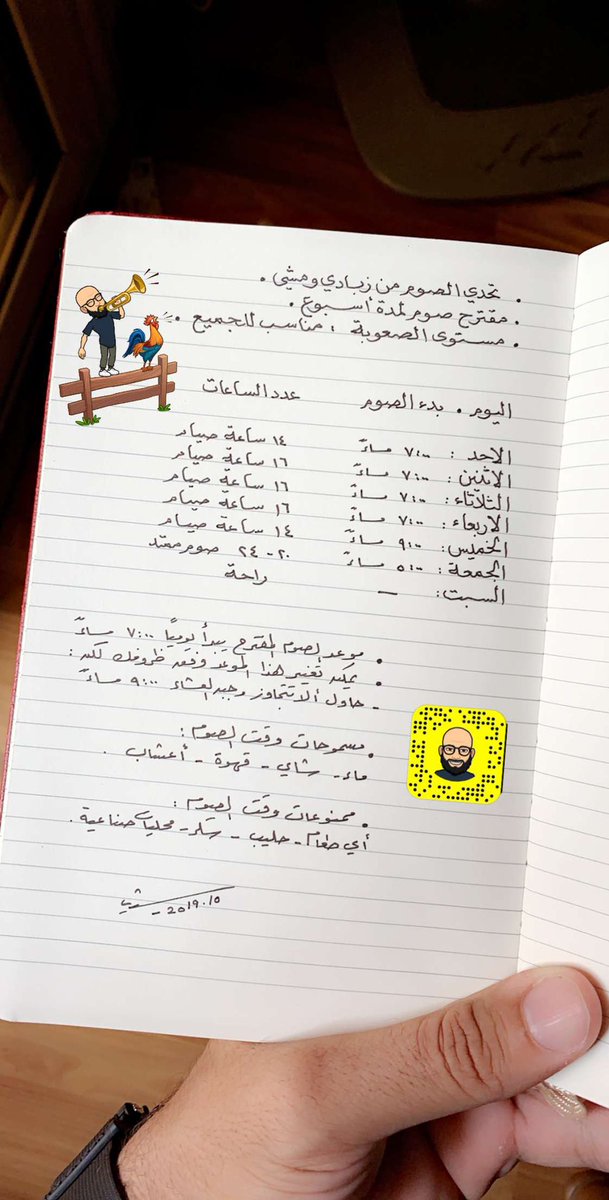 . تحدي الصوم من زبادي ومشي .
. مقترح صوم لمدة أسبوع .
. مستوى الصعوبة : مناسب للجميع .
اليوم . بدء الصوم عدد الساعات
الاحد : ٧:٠٠ مساءً ١٤ ساعة صيام
الاثنين : ٧:٠٠ مساءً ١٦ ساعة صيام
الثلاثاء : ٧:٠٠ مساءً ١٦ ساعة صيام
الاربعاء : ٧:٠٠ مساءً ١٦ ساعة صيام
الخميس : ٩:٠٠ مساءً ١٤ ساعة صيام
الجمعة : ٥:٠٠ مساءً ٢٠-٢٤ صوم ممتد
السبت : – راحة
. موعد الصوم المقترح يبدأ يوميًا ٧:٠٠ مساءً
. يمكنك تغيير هذا الموعد وفق ظروفك لكن :
- حاول ألا تتجاوز وجبة العشاء ٩:٠٠ مساءً
. مسموحات وقت الصوم :
ماء - شاي - قهوة - أعشاب .
. ممنوعات وقت الصوم :
أي طعام - حليب - سكر - محليات صناعية .
2019.10